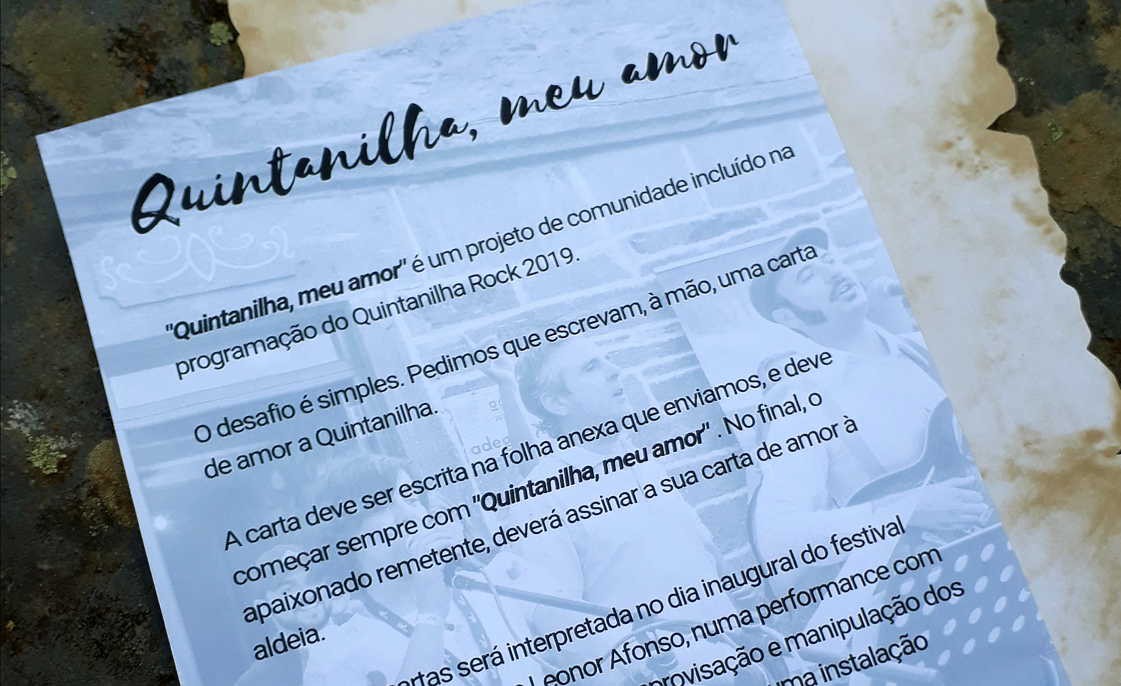 Quintanilha, meu amor
"Quintanilha, meu amor" é um projeto de comunidade incluído na
programação do Quintanilha Rock 2019.
O desafio é simples. Pedimos que escrevam, à mão, uma carta
de amor a Quintanilha.
A carta deve ser escrita na folha anexa que enviamos, e deve
começar sempre com "Quintanilha, meu amor" . No final, o
apaixonado remetente, deverá assinar a sua carta de amor à
aldeia.
será interpretada no dia inaugural do festival
Leonor Afonso, numa performance com
e manipulação dos
uma instalação